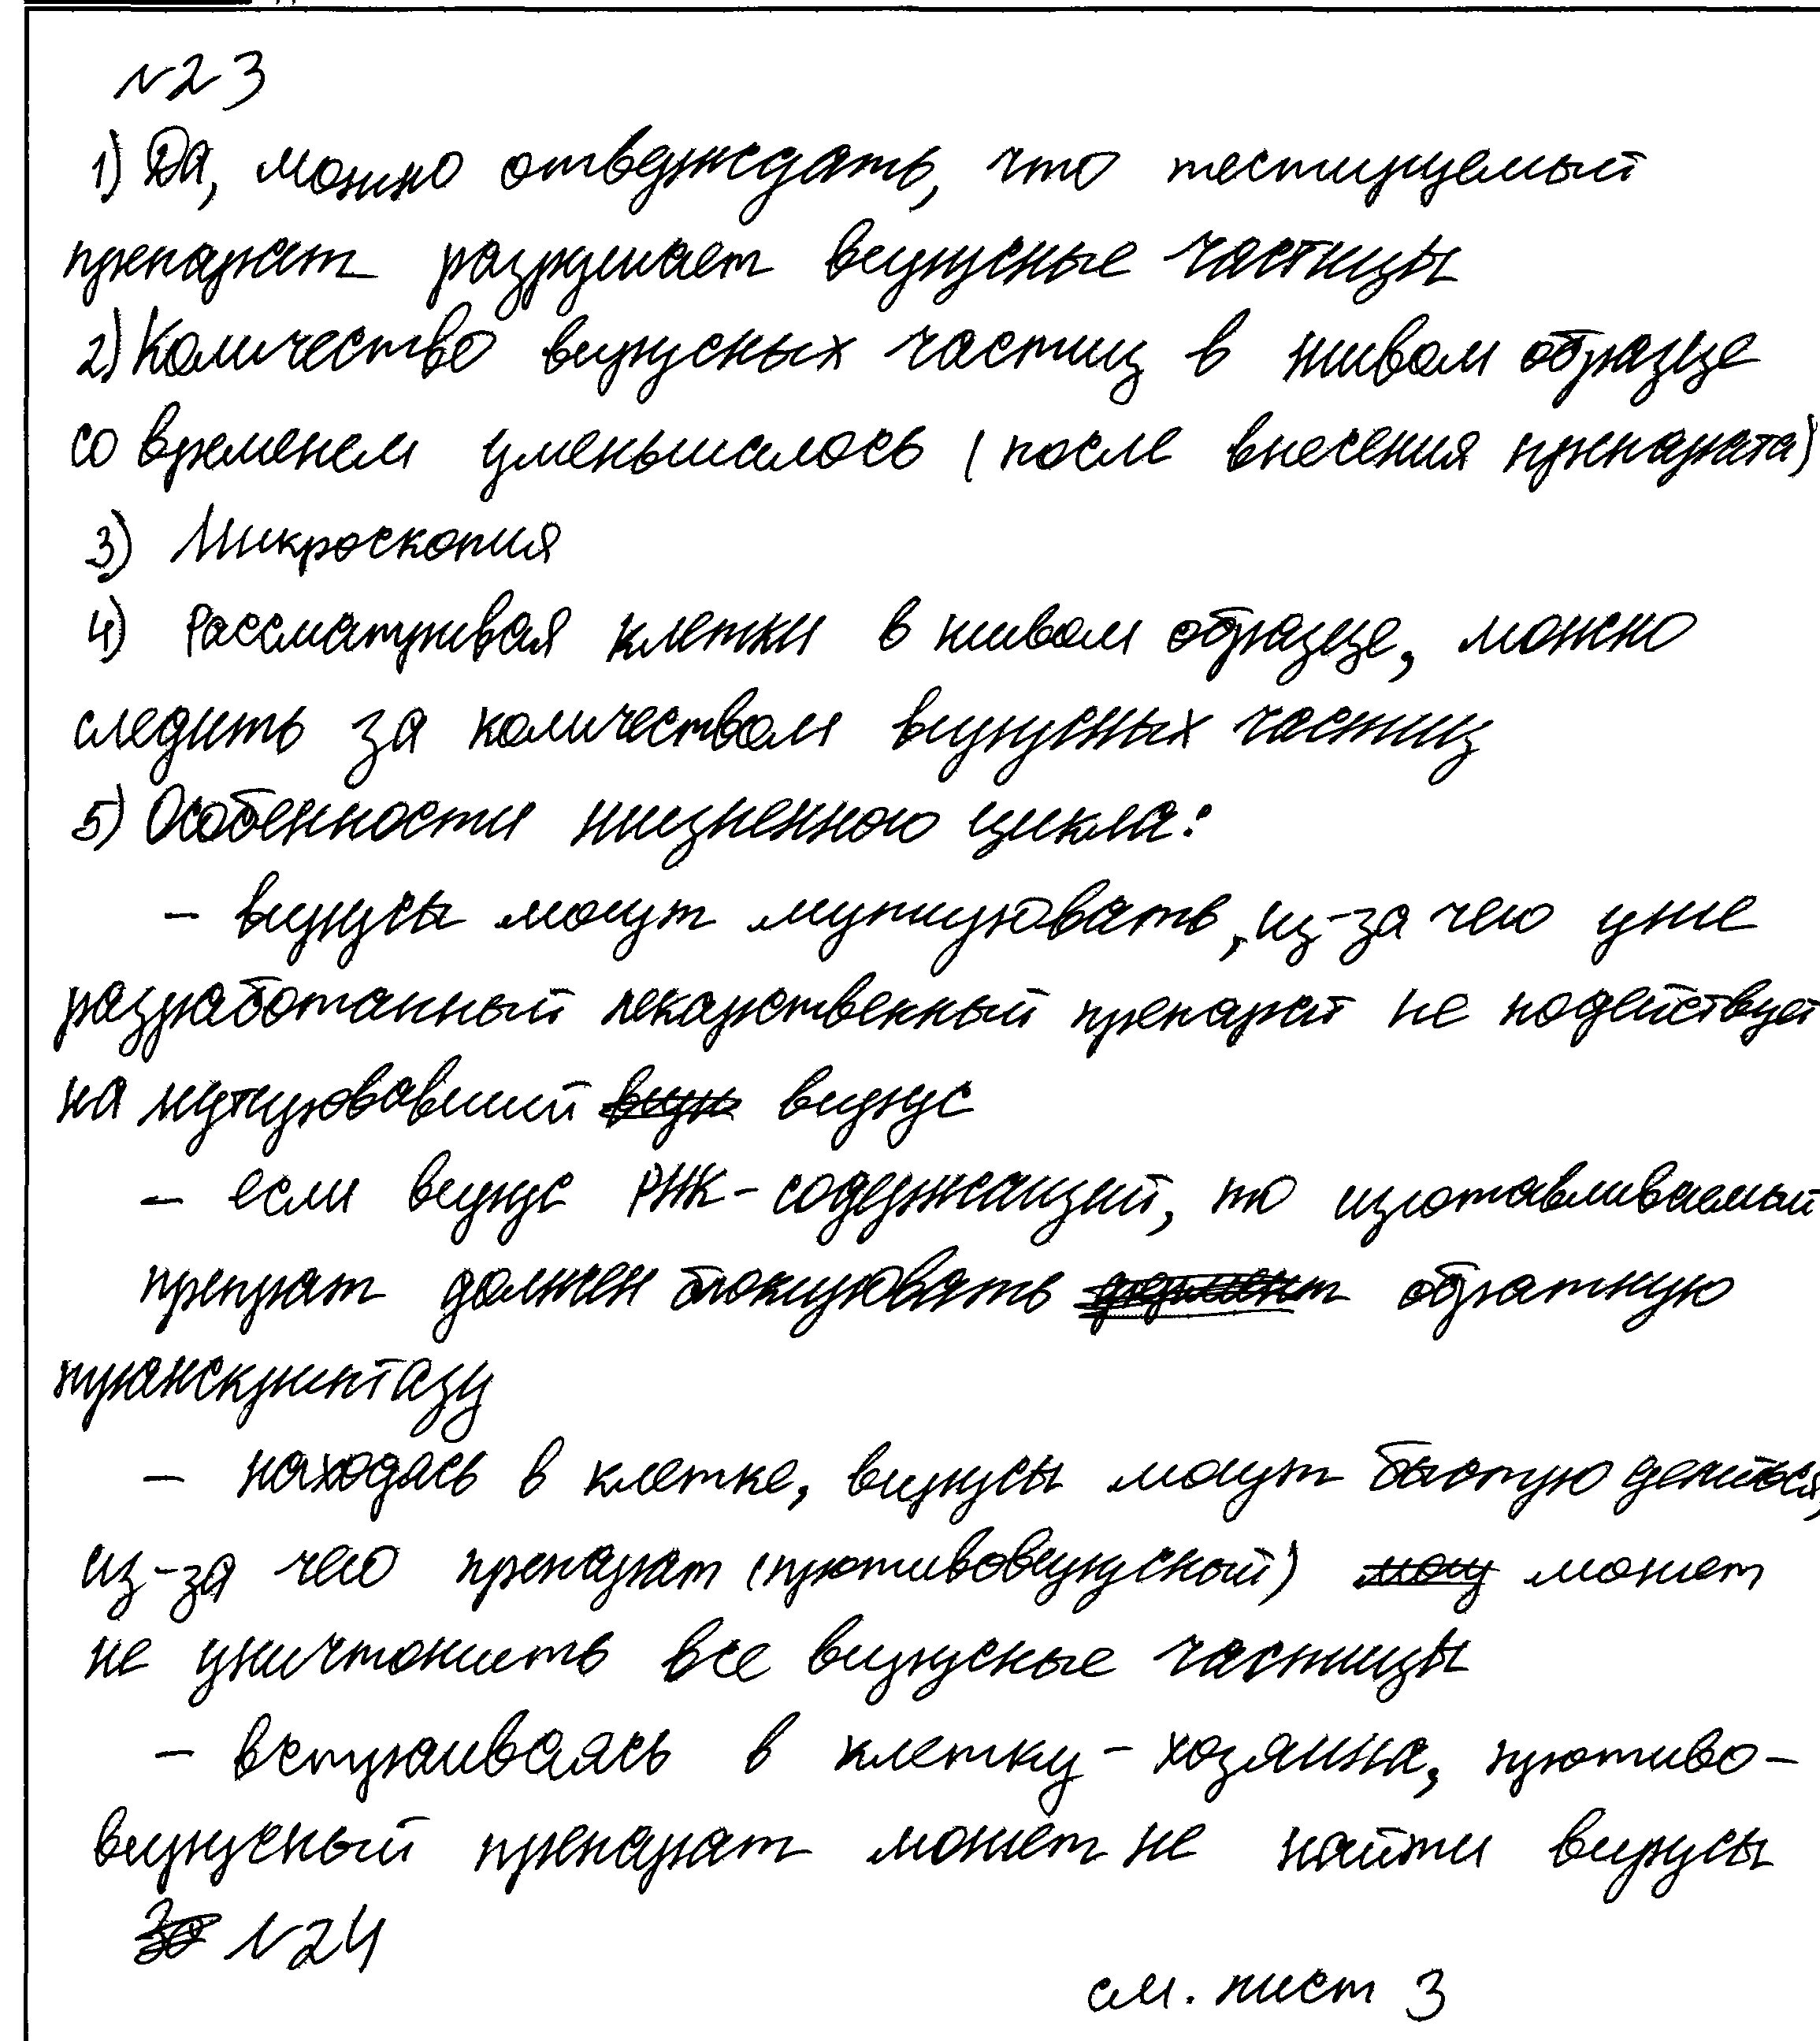 №23
1) Да, можно отверждать, что тестируемый
препарат разрушает вирусные частицы
2) Количество вирусных частиц в живом образце
со временем уменьшалось (после внесения препарата)
3) Микроскопия
4) Рассматривая клетки в живом образце, можно
следить за количеством вирусных частиц
5) Особенности жизненного цикла:
- вирусы могут мутировать, из-за чего уже
разработанный лекарственный препарат не подействует
на мутировавший вирус
- если вирус РНК-содержащий, то изготавливаемый
препрат должен блокировать обратную
транскриптазу
- находясь в клетке, вирусы могут быстро делиться,
из-за чего препарат (противовирусный) может
не уничтожить все вирусные частицы
- встраиваясь в клетку-хозяина, противо-
вирусный препарат может не найти вирусы
№24
см. лист 3